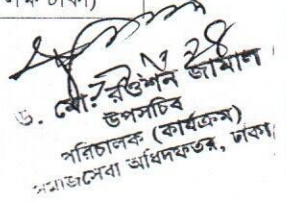 ড. মোঃ রওশন জামাল
উপসচিব
পরিচালক (কার্যক্রম)
সমাজসেবা অধিদফতর, ঢাকা।